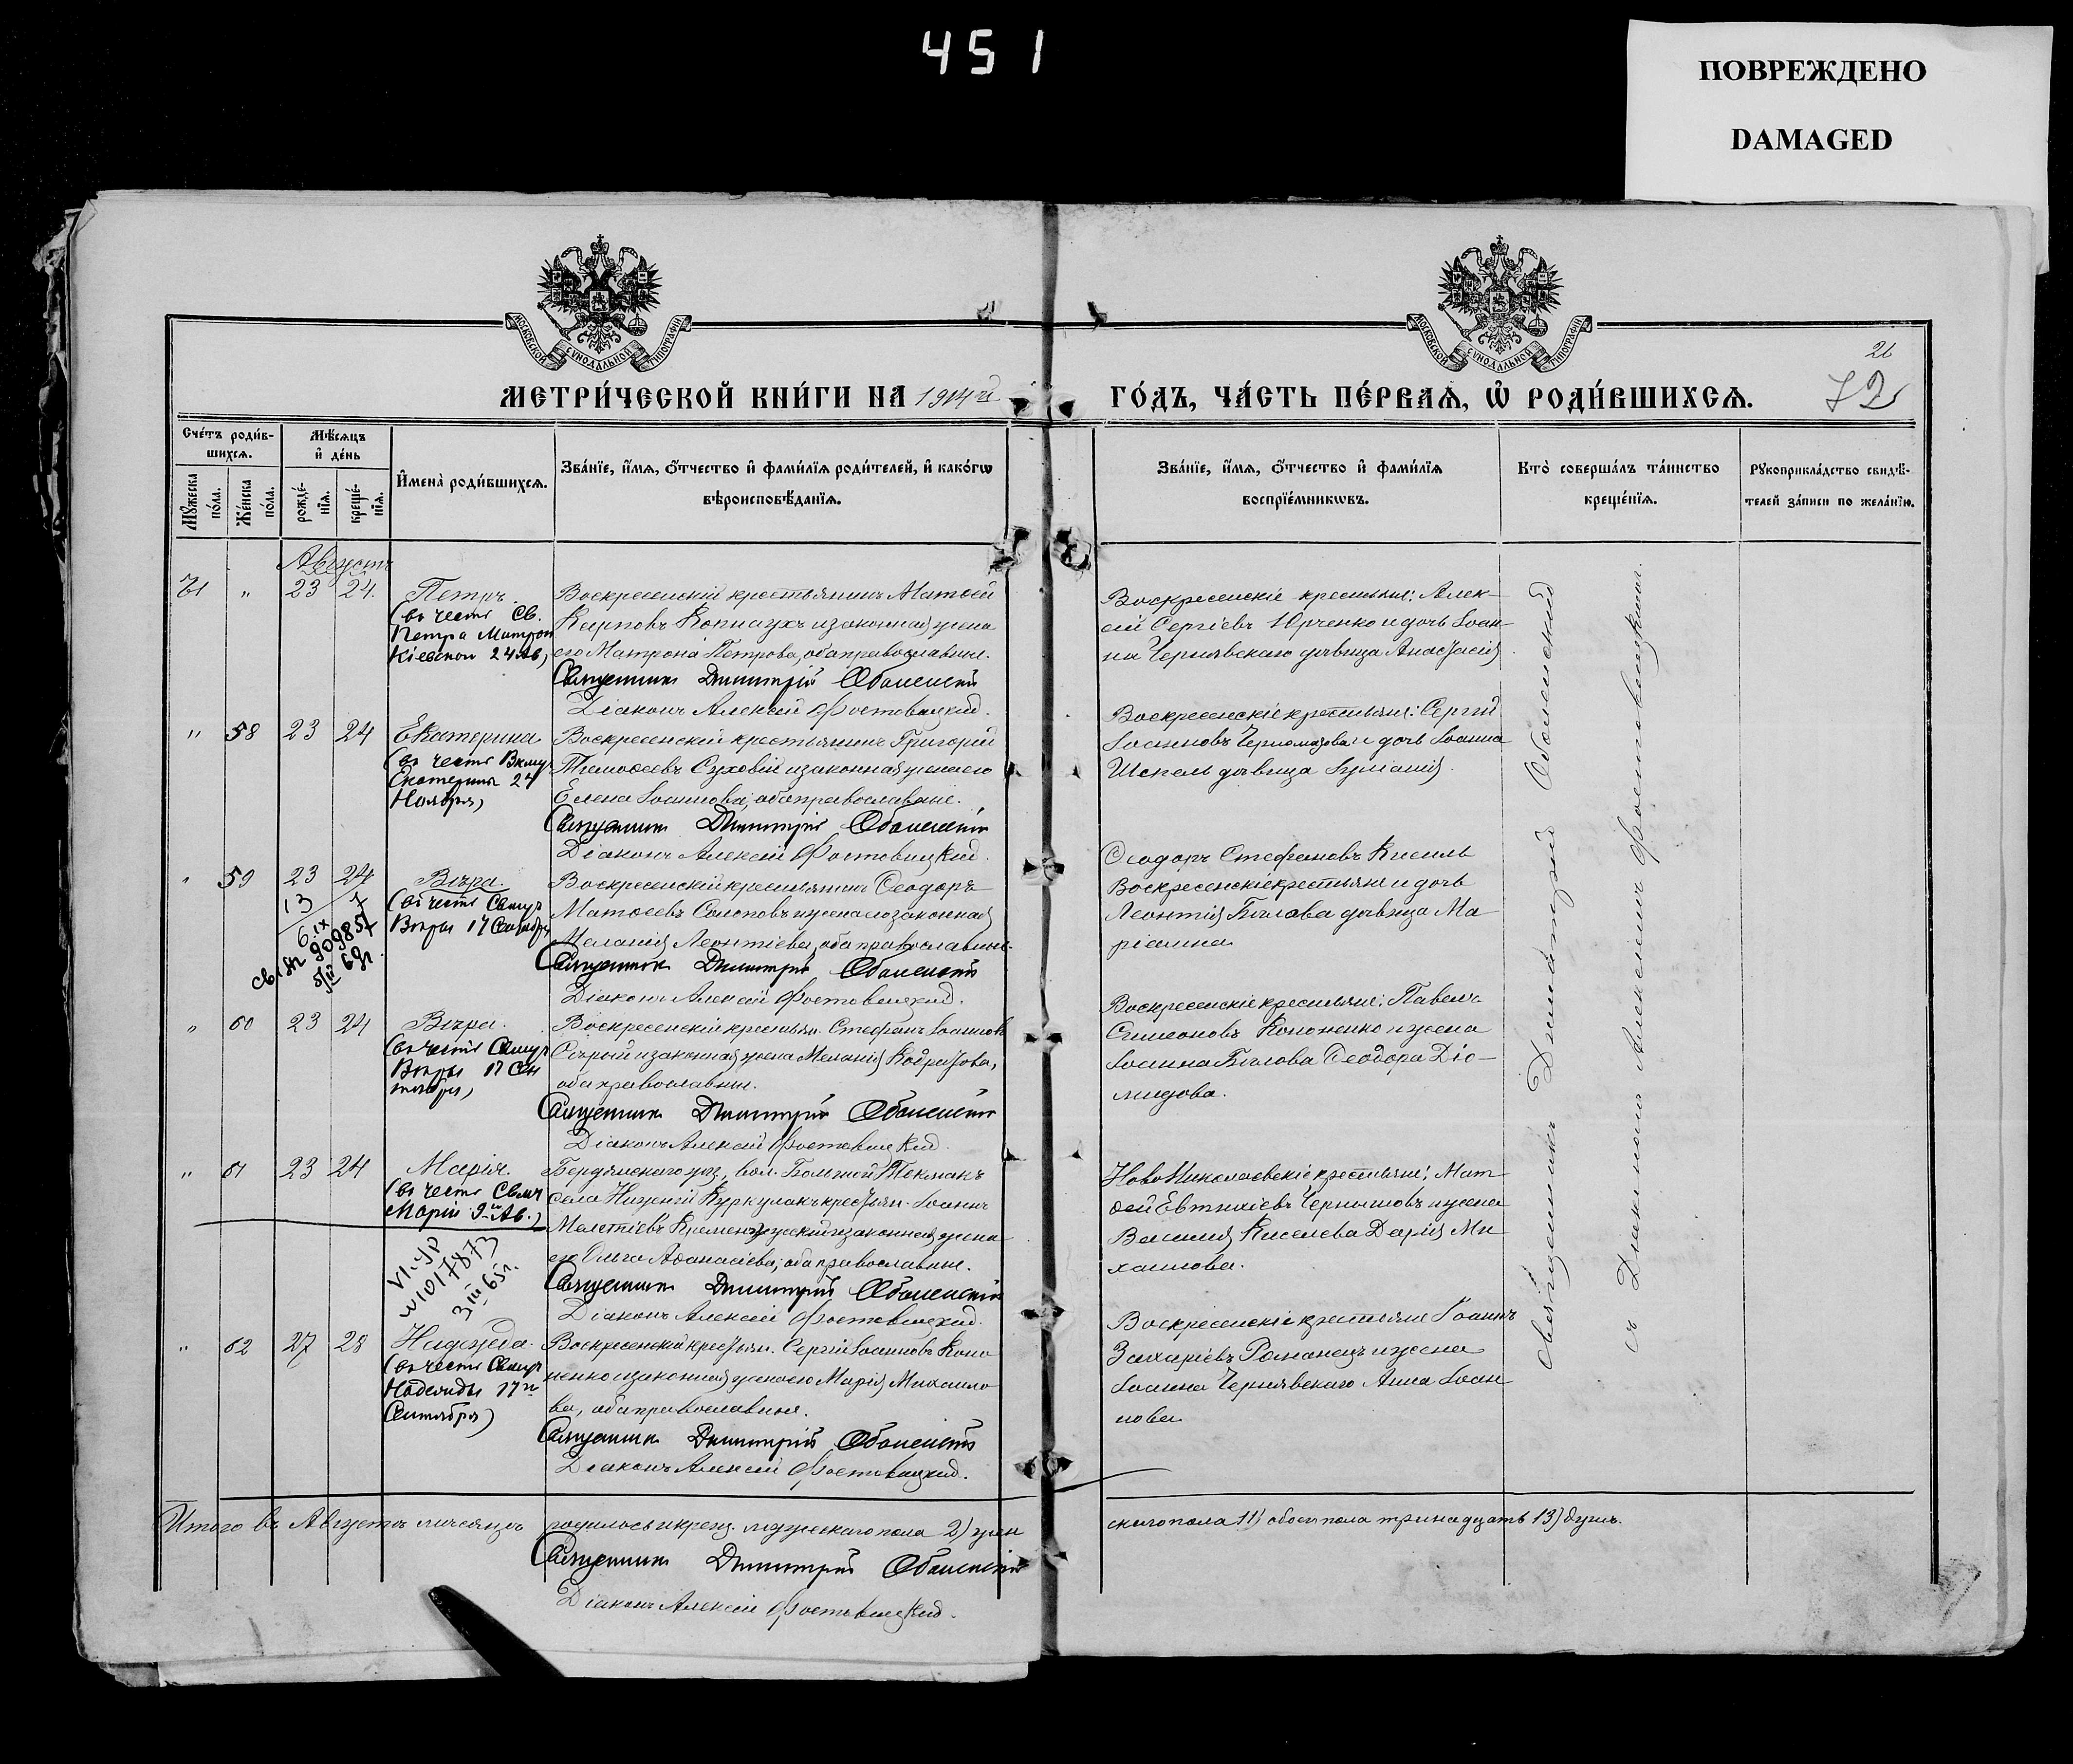 451
ПОВРЕЖДЕНО
DAMAGED
МОСКОВСКОЙ СѴНОДАЛЬНОЙ ТИПОГРАФІИ
МОСКОВСКОЙ СѴНОДАЛЬНОЙ ТИПОГРАФІИ
26
72
МЕТРИ́ЧЕСКОЙ КНИ́ГИ НА 1914й
ГО́ДЪ, ЧА́СТЬ ПЕ́РВАѦ, Ѡ҆ РОДИ́ВШИХСѦ.
Сче́тъ роди́в-
шихсѧ.
Мꙋ́жеска
по́ла.
Же́нска
по́ла.
Мѣ́сѧцъ
и҆ де́нь
рожде́-
нїѧ.
креще́-
нїѧ.
И҆мена̀ роди́вшихсѧ.
Зва́нїе, и҆́мѧ, ѻ҆́тчество и҆ фами́лїѧ роди́телей, и҆ како́гѡ
вѣроисповѣ́данїѧ.
Зва́нїе, и҆́мѧ, ѻ҆́тчество и҆ фами́лїѧ
воспрїе́мникѡвъ.
Кто̀ соверша́лъ та́инство
креще́нїѧ.
Рꙋкоприкла́дство свидѣ́-
телей за́писи по жела́нїю.
Августъ
"
23 24.
Петръ.
(въ честь Св.
Петра Митроп
Кіевскои 24 Ав)
Воскресенскій крестьянинъ Матѳей
Карповъ Копнаухъ и законная жена
его Матрона Петрова, оба православные.
Священникъ Димитрій Оболенскій
Діаконъ Алексій Фостовецкій.
Воскресенскіе крестьяне: Алек-
сій Сергіевъ Юрченко и дочь Іоан-
на Чернявскаго дѣвица Анастасія.
" 58 23 24
Екатерина
(въ честь Вкмуч
Екатерины 24
Ноября)
Воскресенскій крестьянинъ Григорій
Тимоѳеевъ Суховій и законная жена его
Елена Іоаннова, оба православные.
Священникъ Димитрій Оболенскій
Діаконъ Алексій Фостовецкій.
Воскресенскіе крестьяне: Сергій
Іоанновъ Черномазовъ и дочь Іоанна
Шепель дѣвица Іуліанія.
" 59 23 24
13
6.IX
св. 909857
5/III 69г.
Вѣра.
(въ честь Свмуч
Вѣры 17 Сентября
Воскресенскій крестьянинъ Ѳеодоръ
Матѳеевъ Солоповъ и жена его законная
Меланія Леонтіева, оба православные.
Священникъ Димитрій Оболенскій
Діаконъ Алексій Фостовецкій.
Ѳеодоръ Стефановъ Кисиль
Воскресенскіе крестьяне и дочь
Леонтія Бѣлова дѣвица Ма
ріанна
" 60 23 24
Вѣра.
(въ честь Свмуч
Вѣры 17 Сен
тября)
Воскресенскій крестьян. Стефанъ Іоанновъ
Сѣрый и законная жена Меланія Кодратова,
оба православные.
Священникъ Димитрій Оболенскій
Діаконъ Алексій Фостовецкій.
Воскресенскіе крестьяне: Павелъ
Симеоновъ Кононенко и жена
Іоанна Бѣлова Ѳеодора Діо-
мидова.
" 61 23 24
Марія.
(въ честь Свмч
Маріи 9го Ав.)
VI-УР
№1017873
3 III 65г.
Бердянскаго уѣз, вол. Большой Текмакъ
села Нижній Куркулакъ крестьян. Іоаннъ
его Ольга Аѳанасіева, оба православные.
Священникъ Димитрій Оболенскій
Діаконъ Алексій Фостовецкій.
Ново Николаевскіе крестьяне: Мат
ѳей Евтихіевъ Чернышовъ и жена
Василія Киселева Дарія Ми
хаилова.
" 62 27 28
Надежда.
(въ честь Свмуч
Надежды 17го
Сентября)
Воскресенскій крестьян. Сергій Іоанновъ Коно
ненко и законная жена его Марія Михаило
ва, оба православные.
Священникъ Димитрій Оболенскій
Діаконъ Алексій Фостовецкій.
Воскресенскіе крестьяне Іоаннъ
Захаріевъ Романецъ и жена
Іоанна Чернявскаго Анна Іоан
нова
Священникъ Димитрій Оболенскій
съ Діакономъ Алексіемъ Фостовецкимъ.
Итого въ Августѣ мѣсяцѣ родилось и крещ. мужескаго пола 2) жен
скаго пола 11) обоего пола тринадцать 13) душъ.
Священникъ Димитрій Оболенскій
Діаконъ Алексій Фостовецкій.